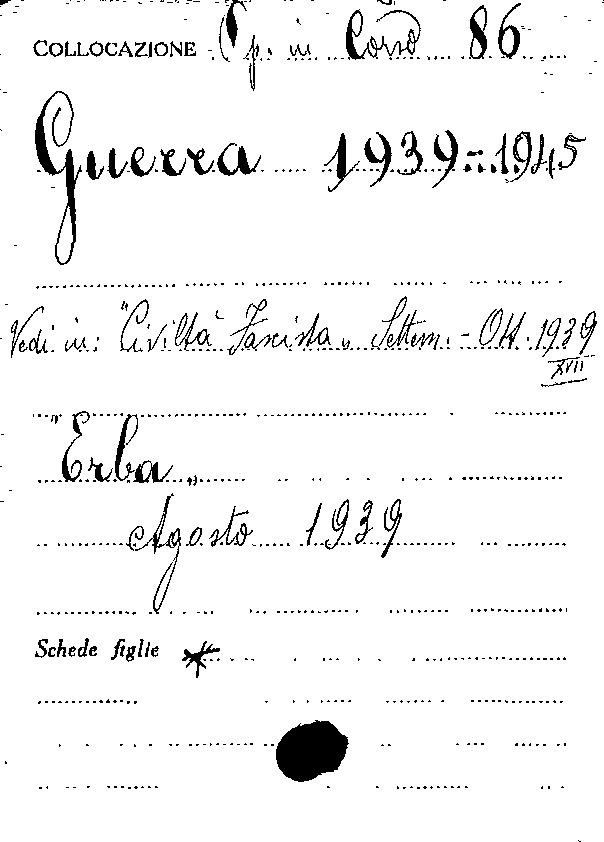 COLLOCAZIONE Op. in Corso 86
Guerra 1939-1945
Vedi in: "Civiltà Fascista„ Settem. - Ott. 1939
XVII
"Erba„
Agosto 1939
Schede figlie *